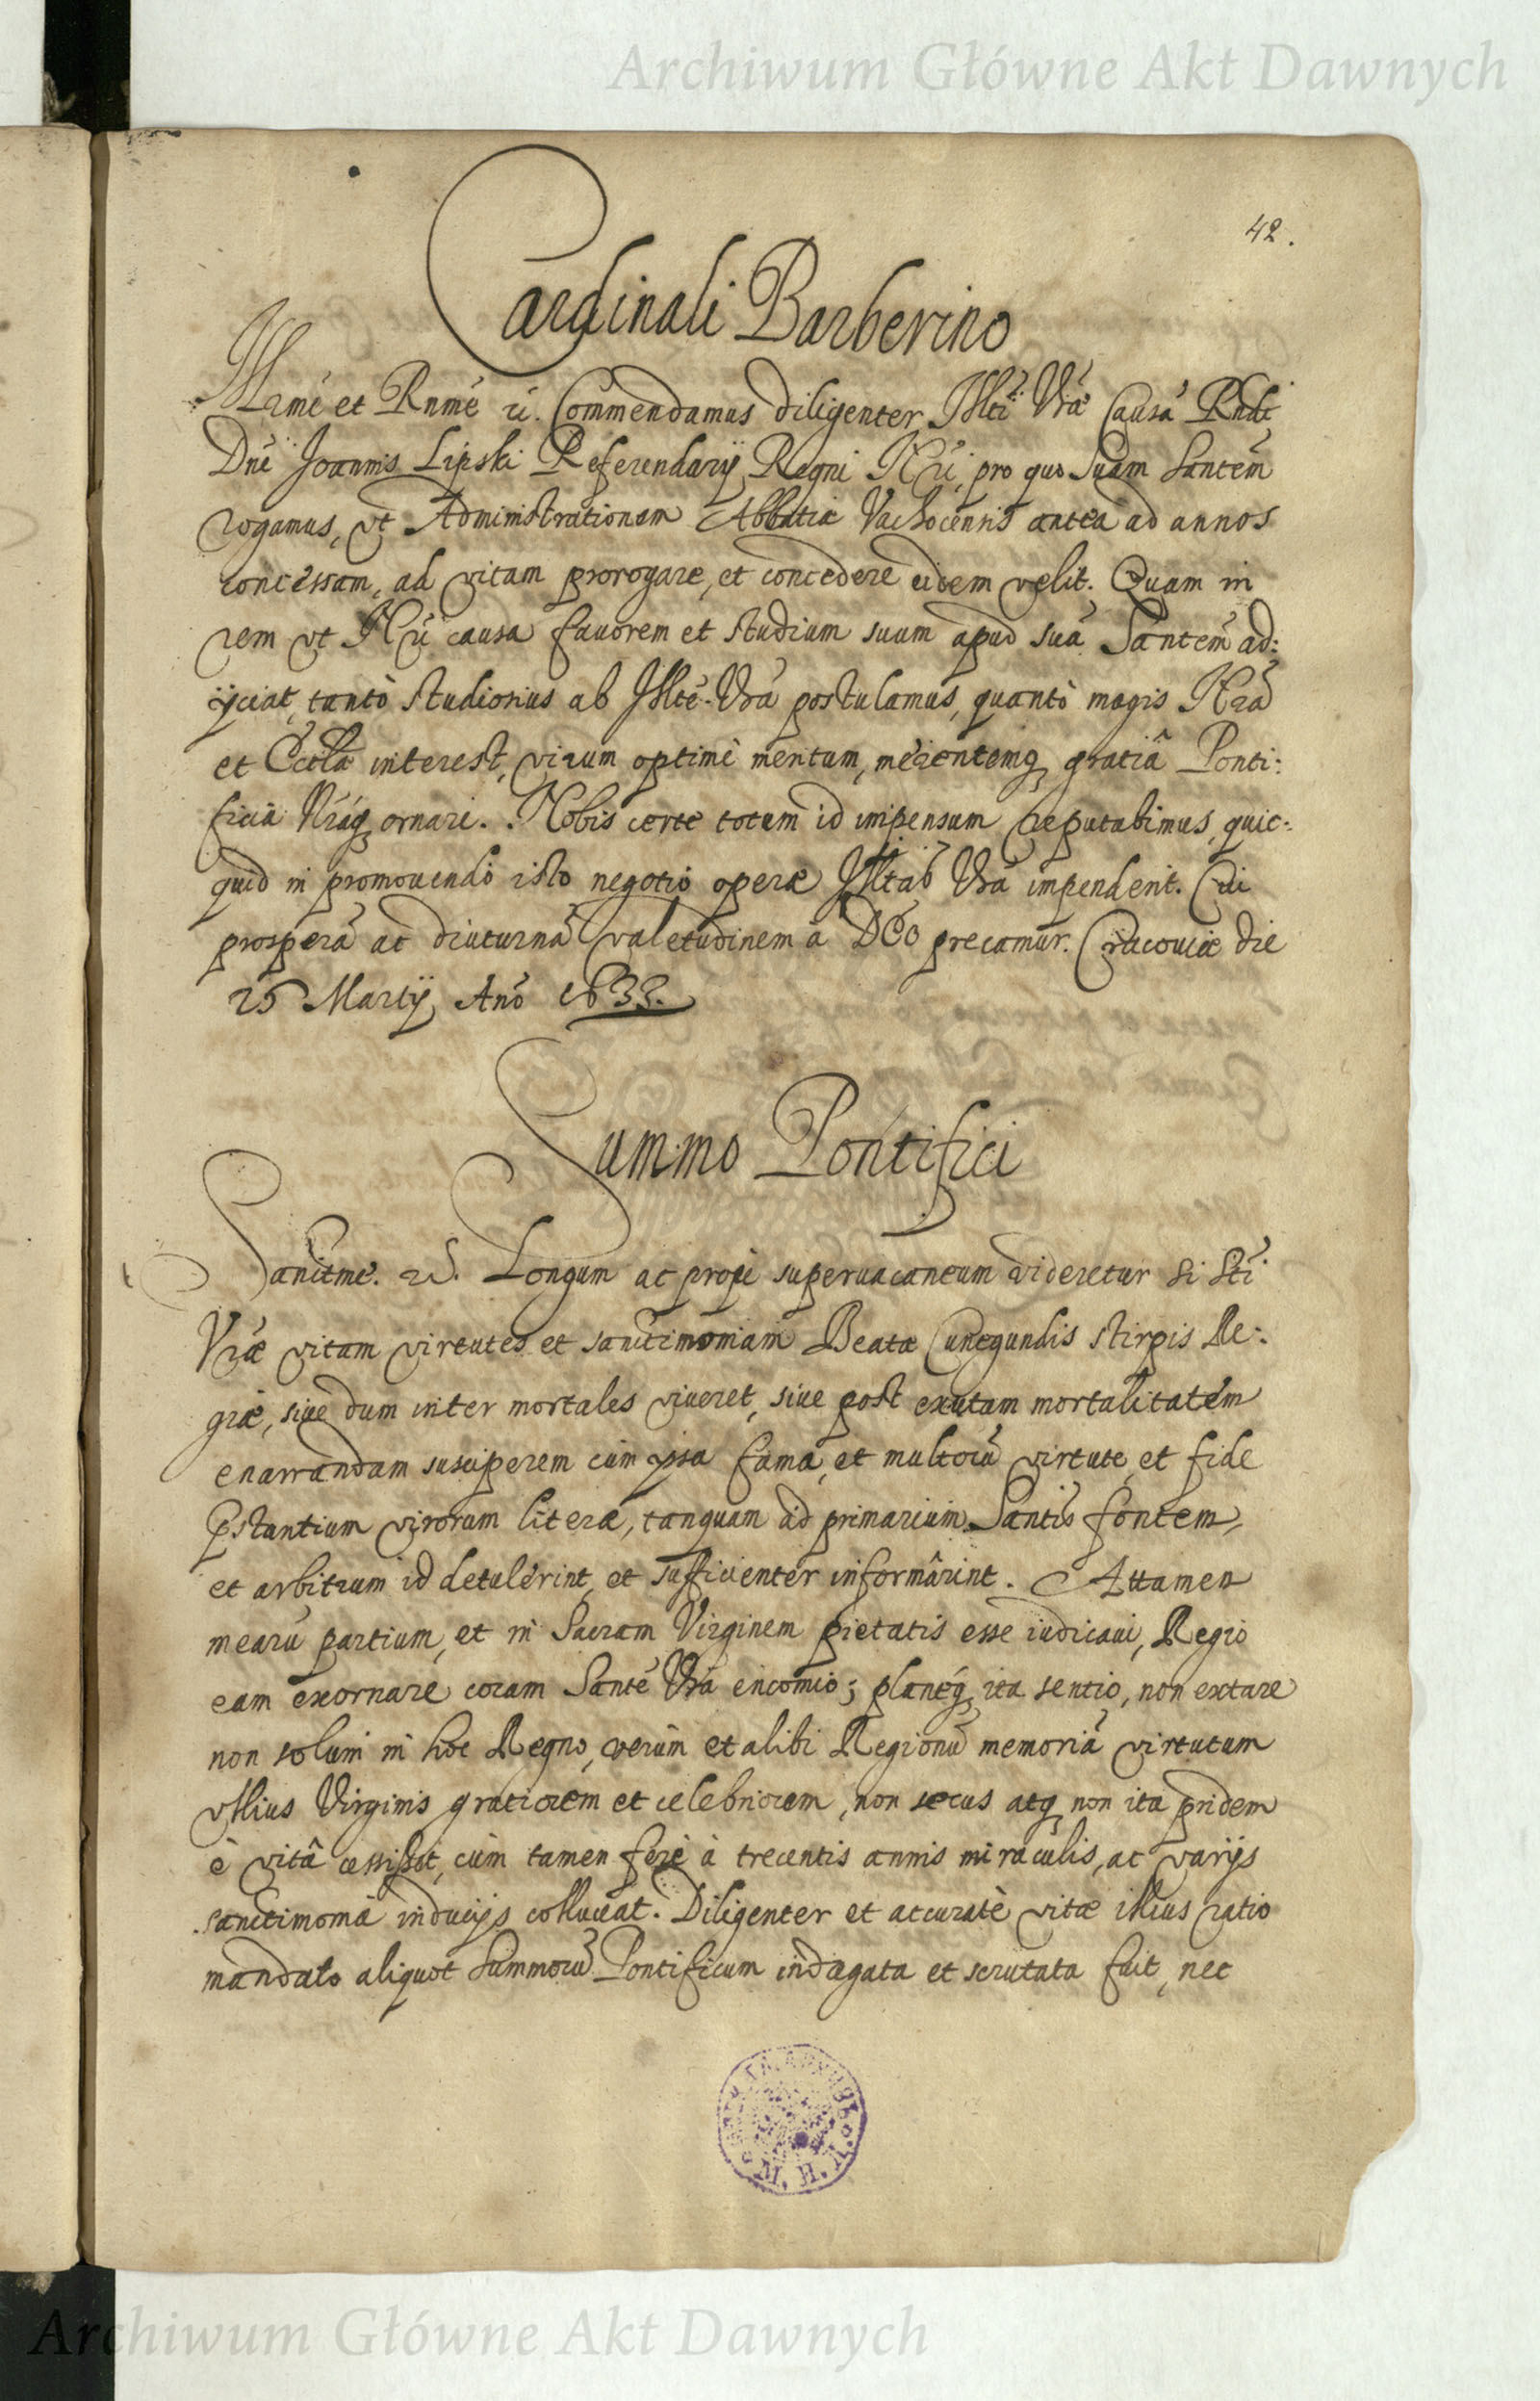 Archiwum Główne Akt Dawnych
42.
Cardinali Barberino
Illrme et Rnme Commendamus diligenter Illti Vrae Causa Rndi
Dni Joannis Lipski Referendarij Regni Nri, pro quo Suam Santem
rogamus, vt Administrationem Abbatiae Vachocensis antea ad annos
concessam, ad vitam prorogare, et concedere eidem velit. Quam in
rem vt Nri causa fauorem et studium suum apud sua Santem ad:
ijciat, tantò studiosius ab Illte Vra postulamus, quantò magis Nra
et Eccla interest, virum optimè meritum, merentemq gratiâ Ponti:
ficiâ Nráq ornari. Nobis certe totum id impensum reputabimus, quic-
quid in promouendo isto negotio operae Illtas Vra impenderit. Cui
prosperã ac diuturnã valetudinem a DEo precamur. Cracouiae die
25 Martij Ano 1633.
Summo Pontifici
Sanctme. Longum ac propè superuacaneum videretur si Sti
Vrae vitam virtutes et sanctimoniam Beatae Cunegundis stirpis Re:
giae, siue dum inter mortales viueret, siue post exutam mortalitatem
enarrandam susciperem cùm ipsa fama, et multorũ virtute, et fide
pstantium virorum literae, tanquam ad primarium Santis fontem,
et arbitrum id detulerint, et sufficienter informârint. Attamen
mearũ partium, et in Sacram Virginem pietatis esse iudicaui, Regio
eam exornare coram Sante Vra encomio; planéq ita sentio, non extare
non solum in hoc Regno, verùm et alibi Regionũ memoriã virtutum
vllius Virginis gratiorem et celebriorem, non secus atq non ita pridem
è vitâ cessisset, cùm tamen ferè à trecentis annis miraculis, ac varijs
sanctimoniae indicijs colluceat. Diligenter et accuratè vitae illius ratio
mandato aliquot Summorũ Pontificum indagata et scrutata fuit, nec
Archiwum Główne Akt Dawnych